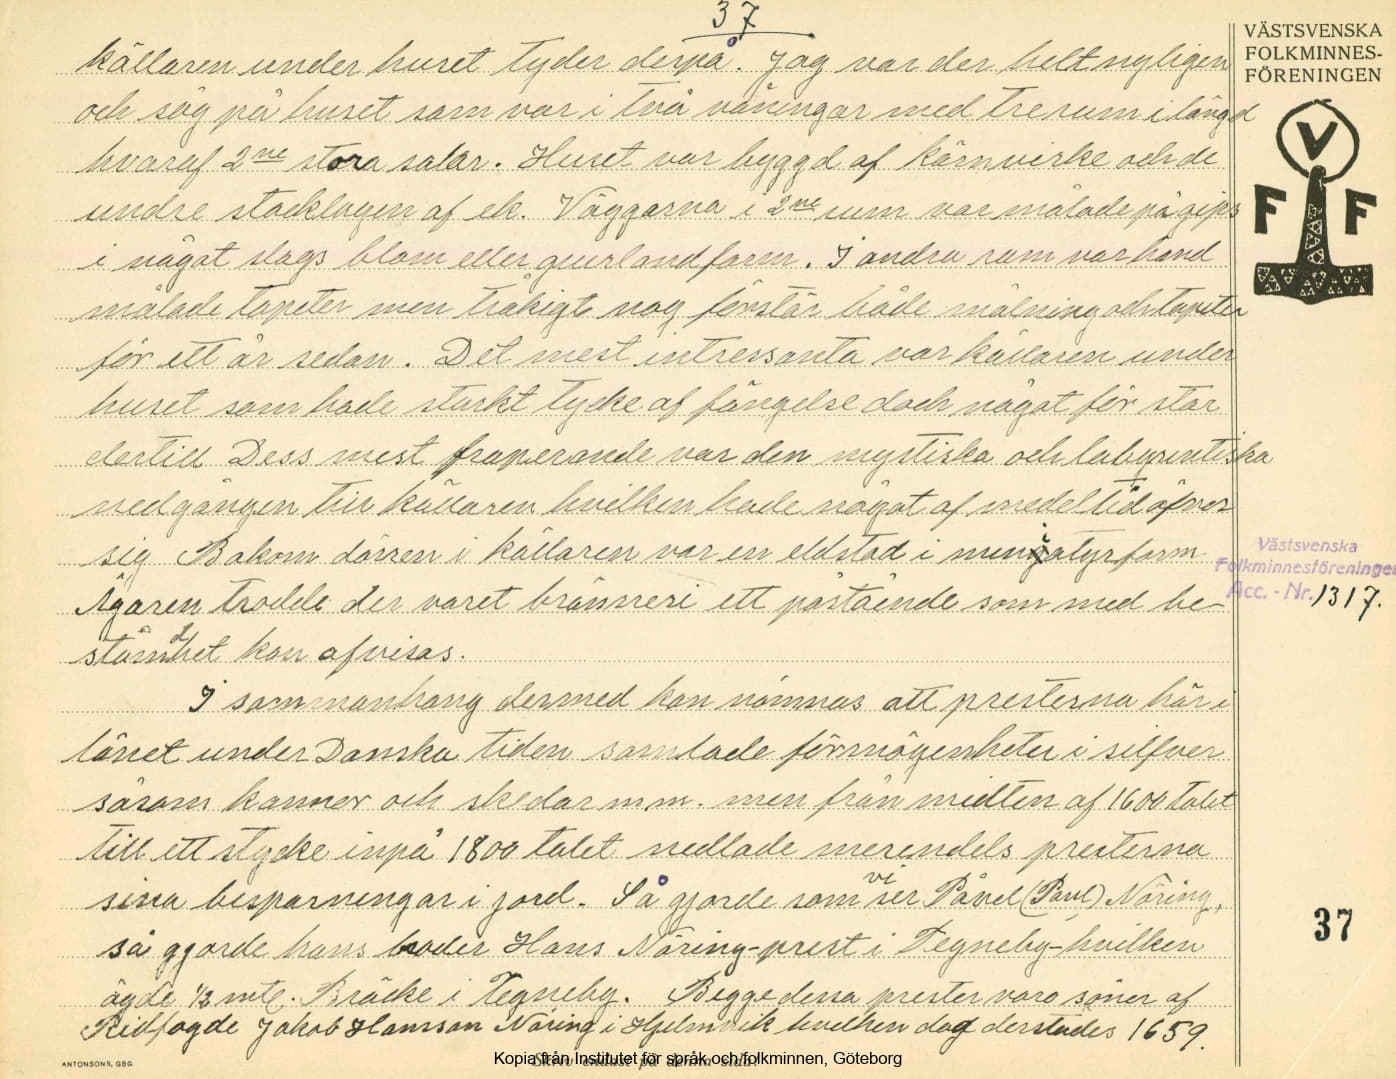 37
källaren under huset tyder derpå. Jag var der helt nyligen
och såg på huset som var i två våningar med tre rum i längd
hvaraf 2ne stora salar. Huset var byggd af kärnvirke och de
undre stocklagen af ek. Väggarna i 2ne rum var målade på gips
i något slags blom eller guirlandform. I andra rum var hand
målade tapeter men tråkigt nog förstör både målning och tapeter
för ett år sedan. Det mest intressanta var källaren under
huset som hade starkt tycke af fängelse dock något för stor
dertill Dess mest fraperande var den mystiska och labyrintiska
nedgången till källaren hvilken hade något af medeltid öfver
sig Bakom dörren i källaren var en eldstad i miniatyrform
Ägaren trodde der varet bränneri ett påstående som med be-
stämdhet kan afvisas.
I sammanhang dermed kan nämnas att presterna här i
länet under Danska tiden samlade förmögenheter i silfver
såsom kannor och skedar m m. men från midten af 1600 talet
till ett stycke inpå 1800 talet nedlade merendels presterna
sina besparningar i jord. Så gjorde som vi ser Påvel (Paul) Näring,
så gjorde hans broder Hans Näring-prest i Tegneby-hvilken
ägde 1/2 mtl. Bräcke i Tegneby. Begge dessa prester voro söner af
Ridfogde Jakob Hansson Näring i Hjelmvik hvilken dog derstädes 1659.
VÄSTSVENSKA
FOLKMINNES-
FÖRENINGEN
V
F F
Västsvenska
Folkminnesföreningen
Acc. - Nr. 1317.
37
ANTONSONS, GBG
Skriv endast på denna sida!
Kopia från Institutet för språk och folkminnen, Göteborg